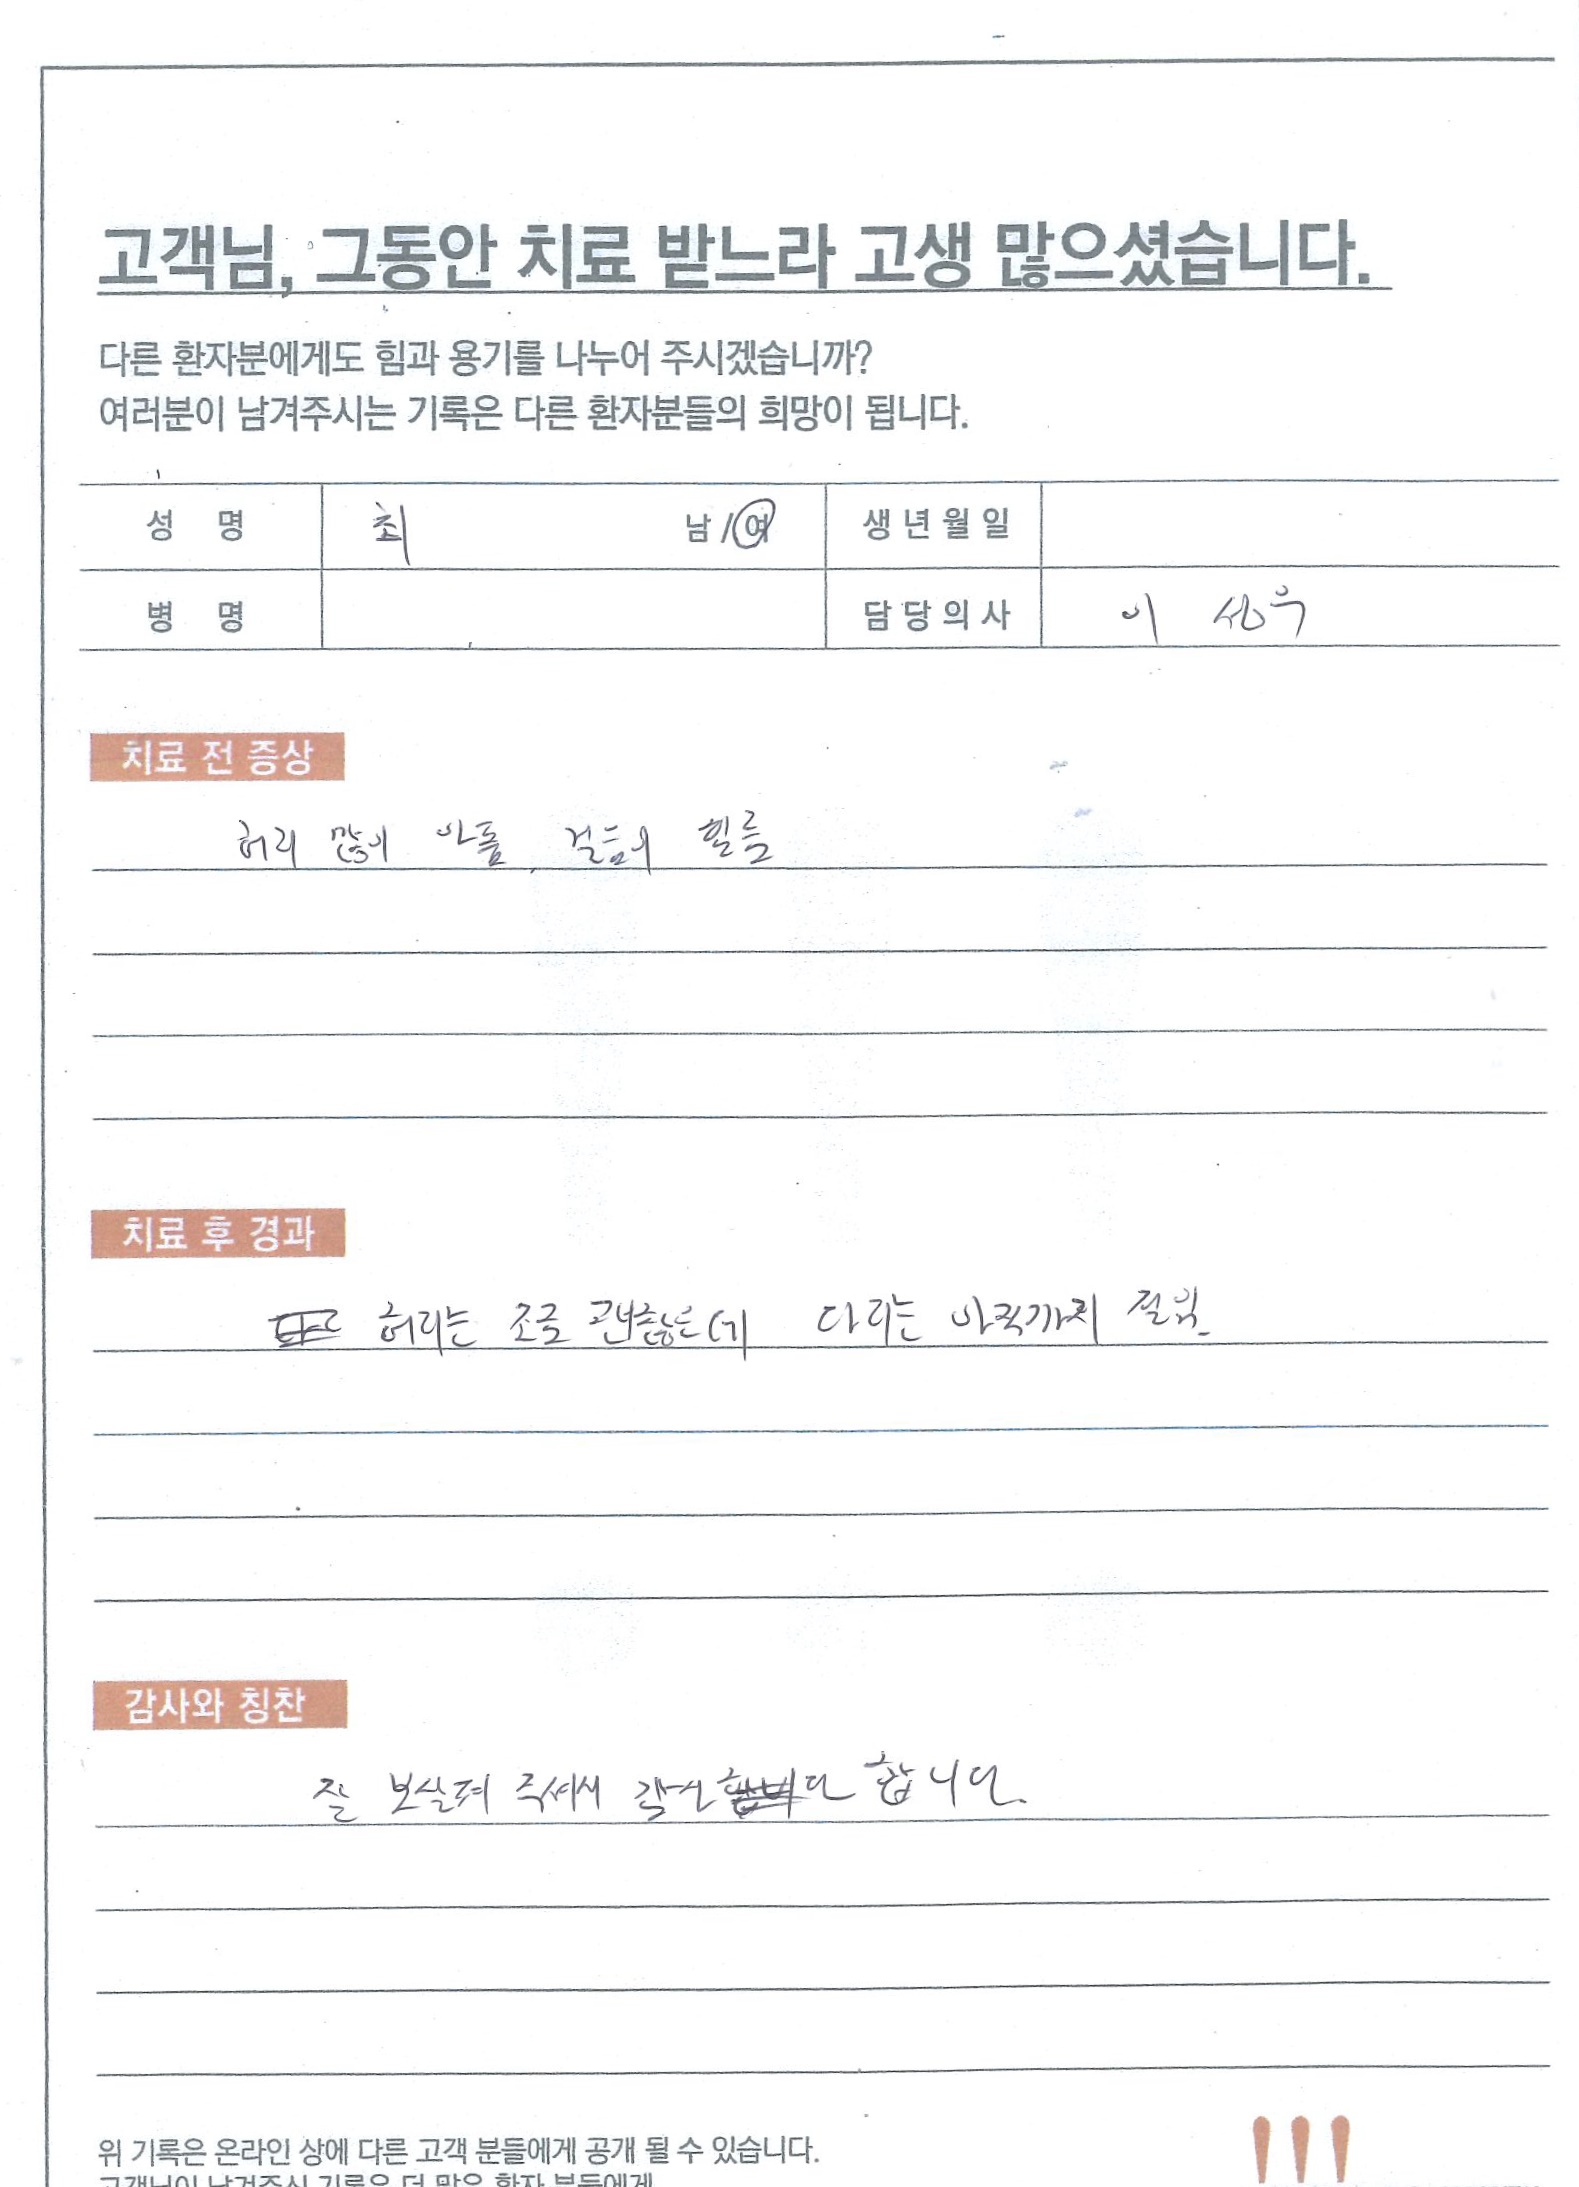 고객님, 그동안 치료 받느라 고생 많으셨습니다.
다른 환자분에게도 힘과 용기를 나누어 주시겠습니까?
여러분이 남겨주시는 기록은 다른 환자분들의 희망이 됩니다.
성 명 최 남/여 생년월일
병 명 담당의사 이 상우
치료 전 증상
허리 많이 아픔, 걸음이 힘듬
치료 후 경과
허리는 조금 괜찮은데 다리는 아직까지 절임.
감사와 칭찬
잘 보살펴 주셔서 감사 합니다.
위 기록은 온라인 상에 다른 고객 분들에게 공개 될 수 있습니다.
고객님이 남겨주신 기록은 더 많은 환자 분들에게
!!!